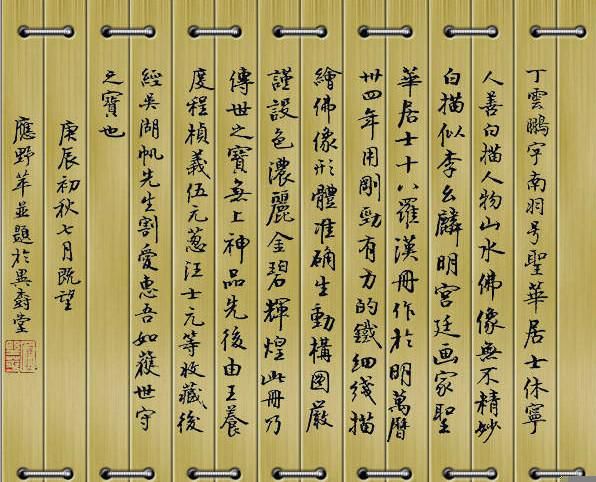 丁雲鵬字南羽号聖華居士休寧
人善白描人物山水佛像無不精妙
白描似李公麟明宮廷画家聖
華居士十八羅漢冊作於明萬曆
卅四年用剛勁有力的鐵細线描
繪佛像形體准确生動構图嚴
謹設色濃麗金碧輝煌此冊乃
傳世之寶無上神品先後由王養
度程楨義伍元蔥汪士元等收藏後
經吳湖帆先生割愛惠吾如獲世守
之寶也
庚辰初秋七月既望
應野苹並題於異壽堂